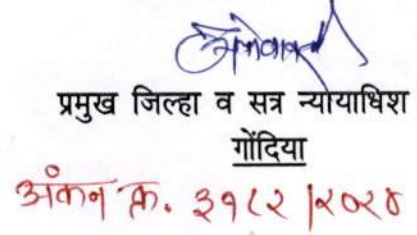 प्रमुख जिल्हा व सत्र न्यायाधिश
गोंदिया
अंकन क्र. ३१८२ /२०२४